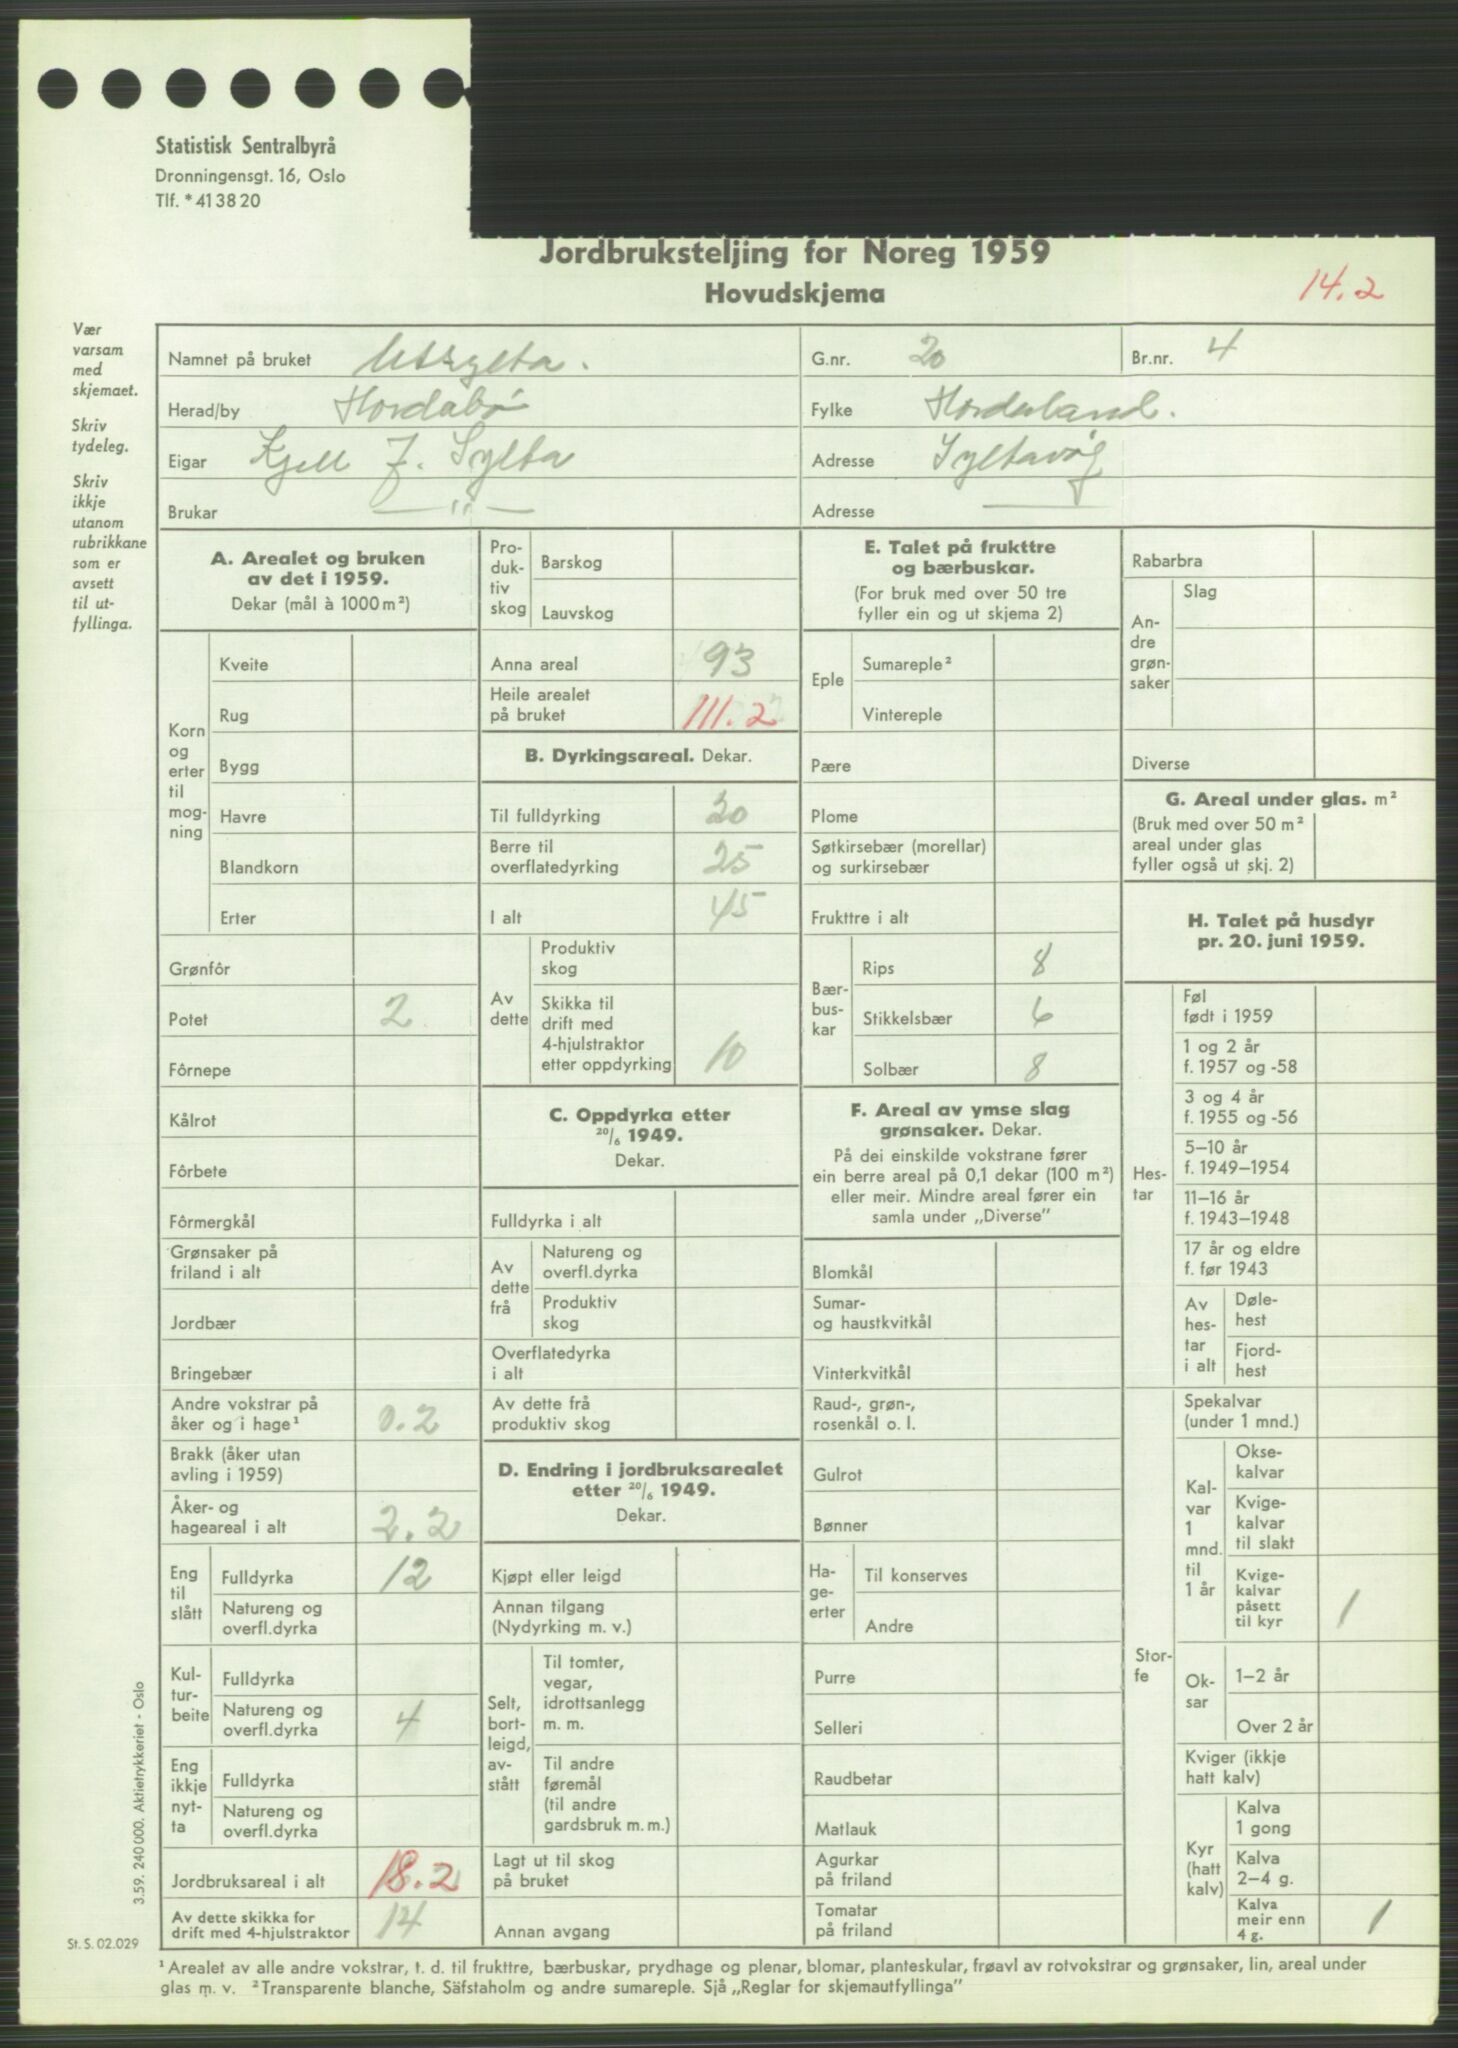 Statistisk Sentralbyrå
Dronningensgt. 16, Oslo
Tlf. * 41 38 20
Jordbruksteljing for Noreg 1959
Hovudskjema
14.2
Vær
varsam
med
skjemaet.
Skriv
tydeleg.
Skriv
ikkje
utanom
rubrikkane
som er
avsett
til ut-
fyllinga.
Namnet på bruket Utsylta.
G.nr. 20
Br.nr. 4
Herad/by Hordabø
Fylke Hordaland.
Eigar Kjell J. Sylta
Adresse Syltavåg
Brukar — " —
Adresse ——
A. Arealet og bruken
av det i 1959.
Dekar (mål à 1000 m²)
Korn
og
erter
til
mog-
ning
Kveite
Rug
Bygg
Havre
Blandkorn
Erter
Grønfôr
Potet 2
Fôrnepe
Kålrot
Fôrbete
Fôrmergkål
Grønsaker på
friland i alt
Jordbær
Bringebær
Andre vokstrar på
åker og i hage¹ 0.2
Brakk (åker utan
avling i 1959)
Åker- og
hageareal i alt 2.2
Eng
til
slått
Fulldyrka 12
Natureng og
overfl.dyrka
Kul-
tur-
beite
Fulldyrka
Natureng og
overfl.dyrka 4
Eng
ikkje
nyt-
ta
Fulldyrka
Natureng og
overfl.dyrka
Jordbruksareal i alt 18.2
Av dette skikka for
drift med 4-hjulstraktor 14
Pro-
duk-
tiv
skog
Barskog
Lauvskog
Anna areal 93
Heile arealet
på bruket 111.2
B. Dyrkingsareal. Dekar.
Til fulldyrking 20
Berre til
overflatedyrking 25
I alt 45
Av
dette
Produktiv
skog
Skikka til
drift med
4-hjulstraktor
etter oppdyrking 10
C. Oppdyrka etter
20/6 1949.
Dekar.
Fulldyrka i alt
Av
dette
frå
Natureng og
overfl.dyrka
Produktiv
skog
Overflatedyrka
i alt
Av dette frå
produktiv skog
D. Endring i jordbruksarealet
etter 20/6 1949.
Dekar.
Kjøpt eller leigd
Annan tilgang
(Nydyrking m. v.)
Selt,
bort-
leigd,
av-
stått
Til tomter,
vegar,
idrottsanlegg
m. m.
Til andre
føremål
(til andre
gardsbruk m. m.)
Lagt ut til skog
på bruket
Annan avgang
E. Talet på frukttre
og bærbuskar.
(For bruk med over 50 tre
fyller ein og ut skjema 2)
Eple
Sumareple²
Vintereple
Pære
Plome
Søtkirsebær (morellar)
og surkirsebær
Frukttre i alt
Bær-
bus-
kar
Rips 8
Stikkelsbær 6
Solbær 8
F. Areal av ymse slag
grønsaker. Dekar.
På dei einskilde vokstrane fører
ein berre areal på 0,1 dekar (100 m²)
eller meir. Mindre areal fører ein
samla under „Diverse”
Blomkål
Sumar-
og haustkvitkål
Vinterkvitkål
Raud-, grøn-,
rosenkål o. l.
Gulrot
Bønner
Ha-
ge-
erter
Til konserves
Andre
Purre
Selleri
Raudbetar
Matlauk
Agurkar
på friland
Tomatar
på friland
Rabarbra
An-
dre
grøn-
saker
Slag
Diverse
G. Areal under glas. m²
(Bruk med over 50 m²
areal under glas
fyller også ut skj. 2)
H. Talet på husdyr
pr. 20. juni 1959.
Hes-
tar
Føl
født i 1959
1 og 2 år
f. 1957 og -58
3 og 4 år
f. 1955 og -56
5–10 år
f. 1949–1954
11–16 år
f. 1943–1948
17 år og eldre
f. før 1943
Av
hes-
tar
i alt
Døle-
hest
Fjord-
hest
Stor-
fe
Spekalvar
(under 1 mnd.)
Kal-
var
1
mnd.
til
1 år
Okse-
kalvar
Kvige-
kalvar
til slakt
Kvige-
kalvar
påsett
til kyr 1
Ok-
sar
1–2 år
Over 2 år
Kviger (ikkje
hatt kalv)
Kyr
(hatt
kalv)
Kalva
1 gong
Kalva
2–4 g.
Kalva
meir enn
4 g. 1
3.59. 240 000. Aktietrykkeriet - Oslo
St. S. 02.029
¹ Arealet av alle andre vokstrar, t. d. til frukttre, bærbuskar, prydhage og plenar, blomar, planteskular, frøavl av rotvokstrar og grønsaker, lin, areal under
glas m. v. ² Transparente blanche, Säfstaholm og andre sumareple. Sjå „Reglar for skjemautfyllinga”